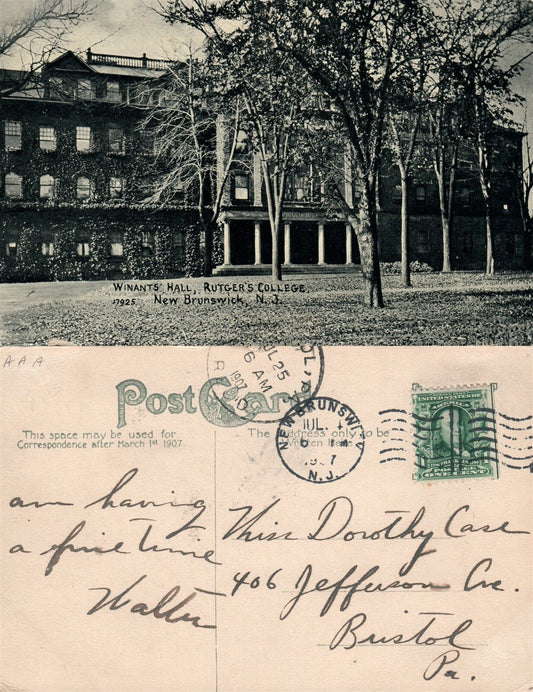 WINANTS' HALL, RUTGER'S COLLEGE.
17925 NEW BRUNSWICK, N. J.
AAA
Post Card
This space may be used for
Correspondence after March 1st 1907.
The Address only to be
Written Here.
25
6 AM
1907
NEW BRUNSWICK
JUL
N.J.
UNITED STATES OF
FRANKLIN
POSTAGE
ONE CENT
am having
a fine time
Walter
Miss Dorothy Case
406 Jefferson Ave.
Bristol
Pa.